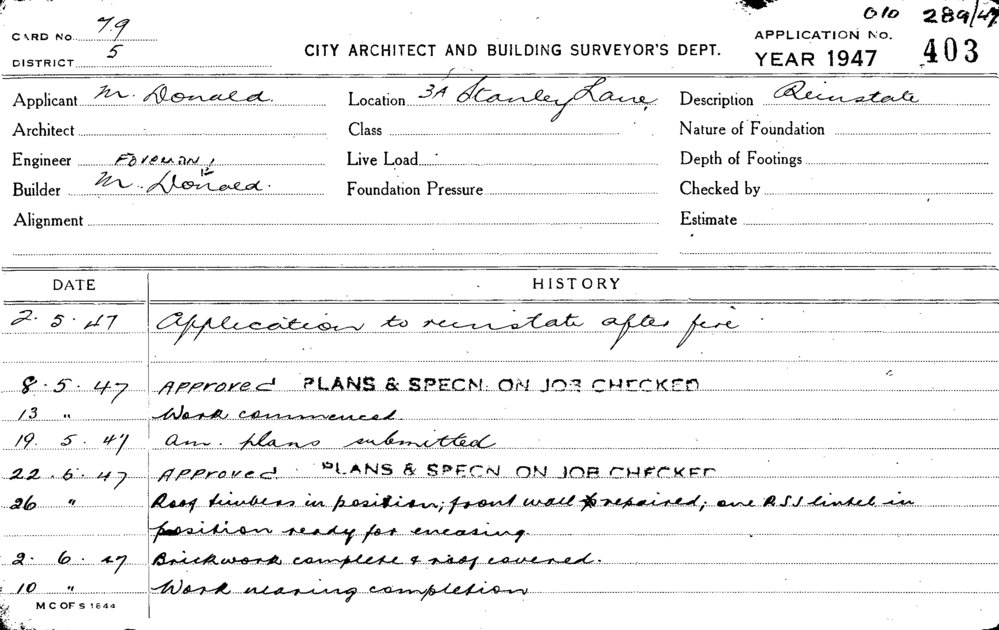 010 289/47
CARD NO. 79
DISTRICT 5
CITY ARCHITECT AND BUILDING SURVEYOR'S DEPT.
APPLICATION NO.
YEAR 1947 403
Applicant M. Donald. Location 3A Stanley Lane, Description Reinstate
Architect Class Nature of Foundation
Engineer Foreman, Live Load Depth of Footings
Builder M. Donald. Foundation Pressure Checked by
Alignment Estimate
DATE HISTORY
2. 5. 47 Application to reinstate after fire.
8. 5. 47 Approved PLANS & SPECN. ON JOB CHECKED
13 " Work commenced.
19. 5. 47 am. plans submitted
22. 5. 47 Approved. PLANS & SPECN ON JOB CHECKED
26 " Roof timbers in position; front wall repaired; one RSS lintel in
position ready for encasing.
2. 6. 47 Brickwork complete & roof covered.
10 " Work nearing completion
M C OF S 1844